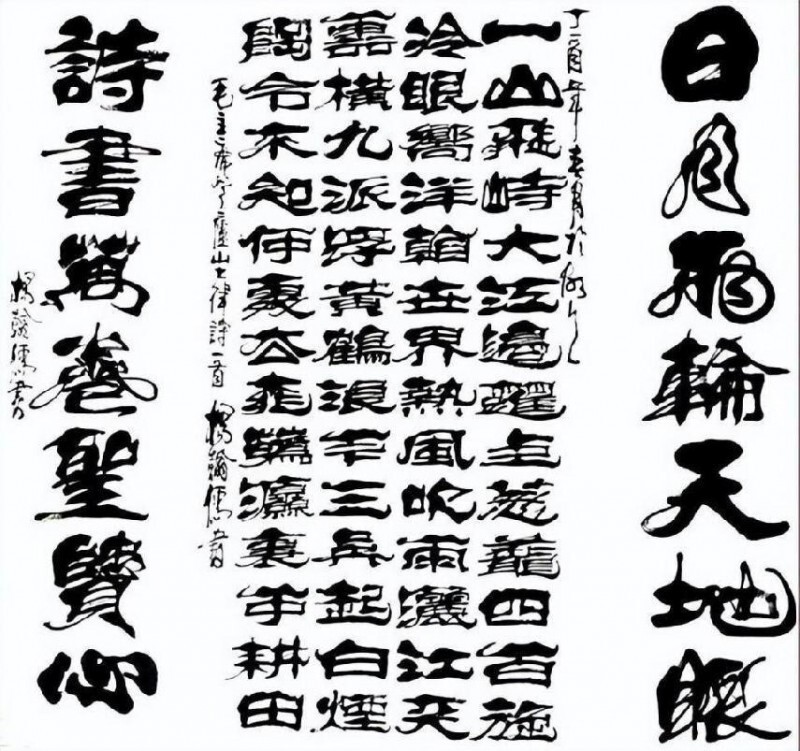 日月兩輪天地眼
丁酉年春月於
一山飛峙大江邊躍上葱蘢四百旋
冷眼嚮洋看世界熱風吹雨灑江天
雲橫九派浮黃鶴浪下三吳起白煙
陶令不知何處去桃花源裏可耕田
毛主席登廬山七律詩一首 楊翰儒書
詩書萬卷聖賢心
楊翰儒書